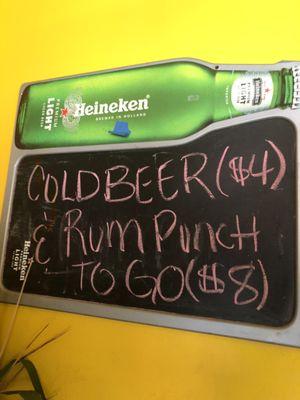 Heineken
BREWED IN HOLLAND
PREMIUM
LIGHT
COLD BEER ($4)
& RUM PUNCH
TO GO ($8)
Heineken
LIGHT